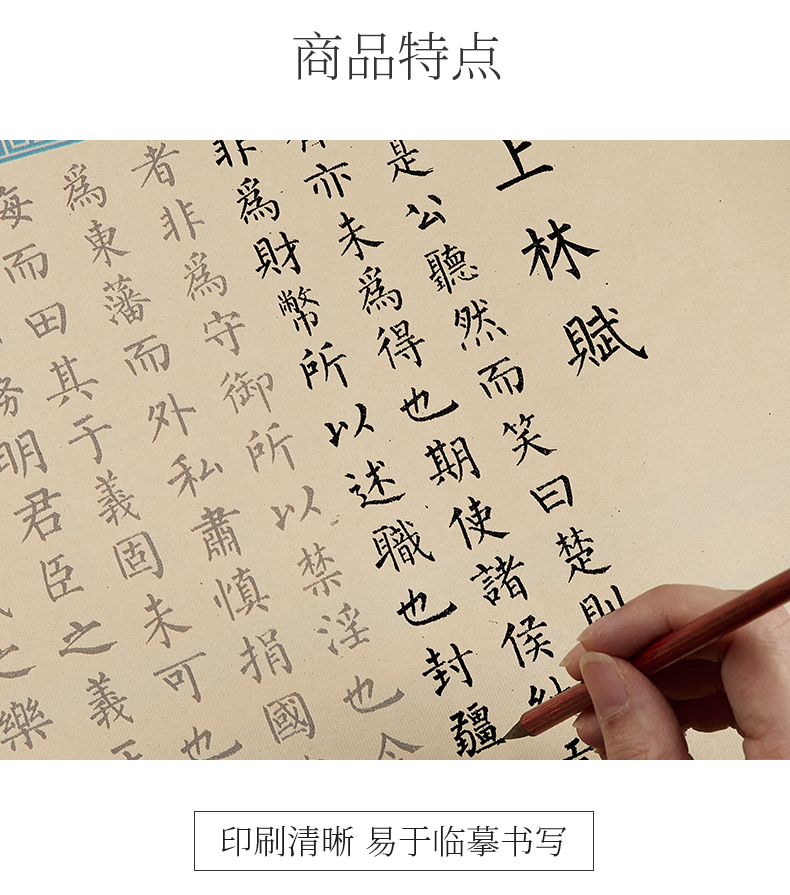 商品特点
上林賦
是公聽然而笑曰楚則
亦未爲得也期使諸侯
非爲財幣所以述職也封疆
者非爲守御所以禁淫也今
爲東藩而外私肅慎捐國
海而田其于義固未可也
務明君臣之義正
之樂
印刷清晰 易于临摹书写